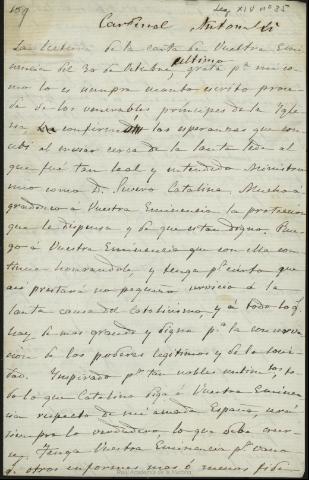 159
Leg XIV nº 35
Cardenal Antonelli
La lectura de la carta de Vuestra Emi
nencia del 30 de Octubre último, grata pª mi co
mo lo es siempre cuanto escrito proce
da de los venerables príncipes de la Igle
sia confirmó las esperanzas que con
cebí al enviar cerca de la Santa Sede al
que fué tan leal y entendido Ministro
mio como D. Severo Catalina. Mucho a
gradezco á Vuestra Eminencia la proteccion
que le dispensa y de que es tan digno. Rue
go á Vuestra Eminencia que con ella con
tinue honrandole, y tenga pr cierto que
asi prestará no pequeño servicio á la
santa causa del catolicismo, y á todo lo q.
hay de mas grande y digno pª la conserva
cion de los poderes legítimos y de la socie
dad. Inspirado pr tan nobles sentim.tos to
do lo que Catalina diga á Vuestra Eminen
cia respecto de mi amada España, será
siempre lo verdadero lo que debe creer
se. Tenga Vuestra Eminencia pr vano
s otros informes mas ó menos fide
Real Academia de la Historia